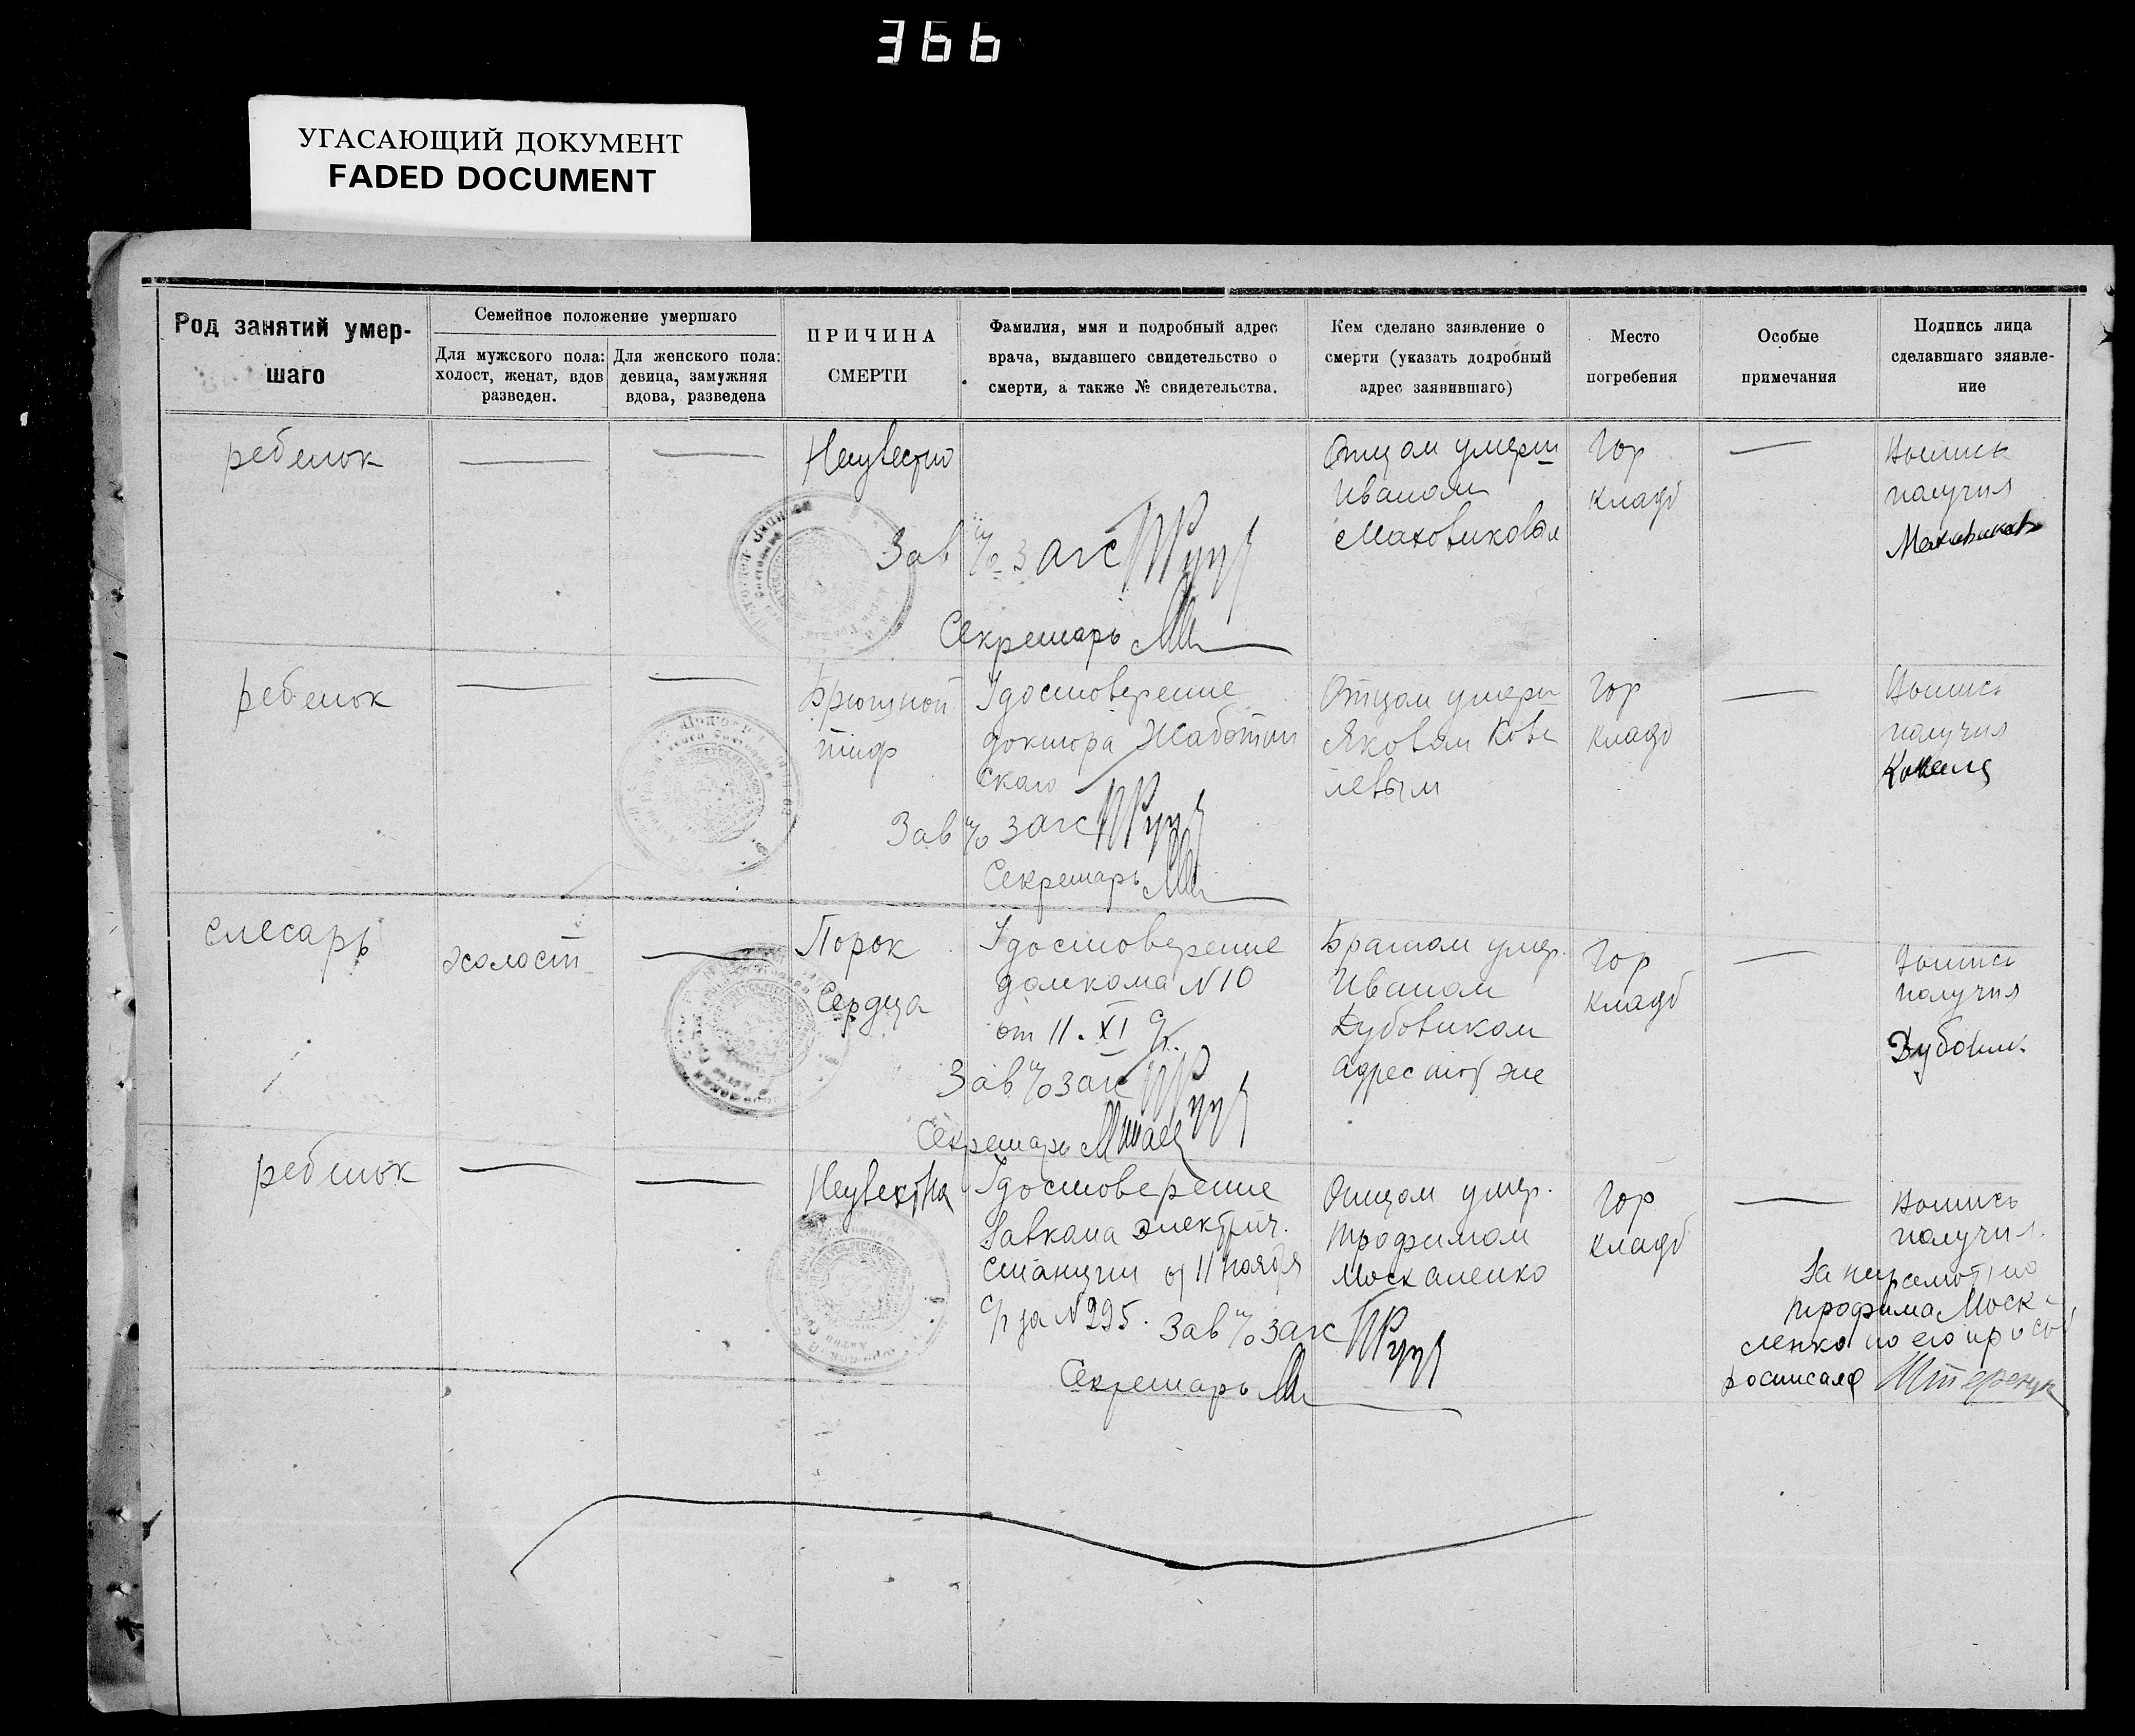 366
УГАСАЮЩИЙ ДОКУМЕНТ
FADED DOCUMENT
Род занятий умер-
шаго
Семейное положение умершаго
Для мужского пола:
холост, женат, вдов
разведен.
Для женского пола:
девица, замужняя
вдова, разведена
ПРИЧИНА
СМЕРТИ
Фамилия, имя и подробный адрес
врача, выдавшего свидетельство о
смерти, а также № свидетельства.
Кем сделано заявление о
смерти (указать додробный
адрес заявившаго)
Место
погребения
Особые
примечания
Подпись лица
сделавшаго зяявле-
ние
ребенок
—
—
Неизвестно
Зав п/о загс
Секретарь
Отцом умерш
Иваном
Маховиковым
Гор
кладб
—
Выпись
получил
Маховиков
ребенок
—
—
Брюшной
тиф
Удостоверение
доктора Жаботин
скаго
Зав п/о загс
Секретарь
Отцом умерш
Яковом Кове
левым
Гор
кладб
—
Выпись
получил
слесарь
холост
—
Порок
Сердца
Удостоверение
домкома N 10
от 11. XI
Зав п/о загс
Секретарь
Братом умер.
Иваном
Дубовиком
адрес тот же
Гор
кладб
—
Выпись
получил
Дубовик
ребенок
—
—
Неизвестна
Удостоверение
Завкома электрич.
станции от 11 ноября
с/г за N 295.
Зав п/о загс
Секретарь
Отцом умер.
Трофимом
Москаленко
Гор
кладб
—
Выпись
получил.
За неграмотного
Трофима Моск-
ленко по его просьб
росписался